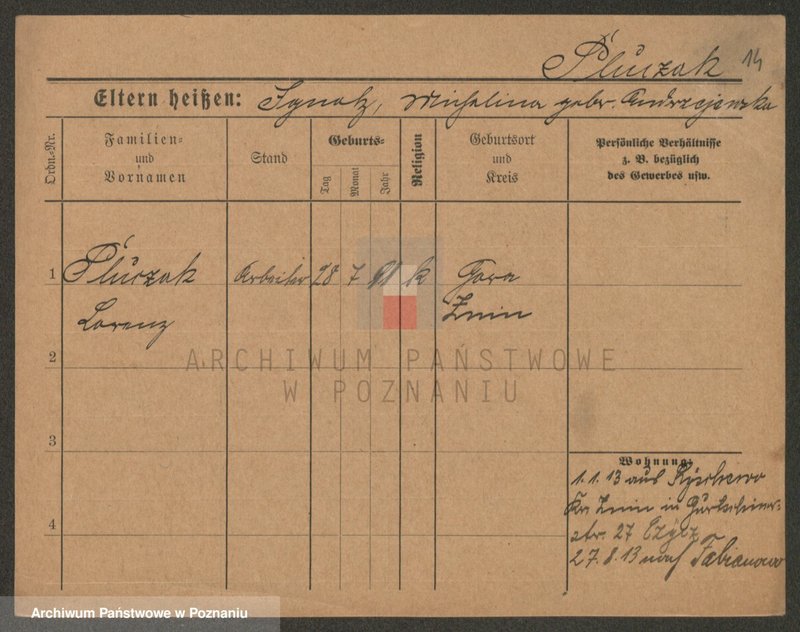 Pluczak 14
Eltern heißen: Ignatz, Michalina gebr. Andrzejewska
Ordn.-Nr.
Familien- und Vornamen
Stand
Geburts-
Tag
Monat
Jahr
Religion
Geburtsort und Kreis
Persönliche Verhältnisse
z. B. bezüglich
des Gewerbes usw.
1 Pluczak Arbeiter 28 7 91 k Gora
Lorenz Znin
2
ARCHIWUM PAŃSTWOWE
W POZNANIU
3
Wohnung:
1.1.13 aus
Kr Znin in
4
str. 27
27.8.13 nach Fabianowo
Archiwum Państwowe w Poznaniu